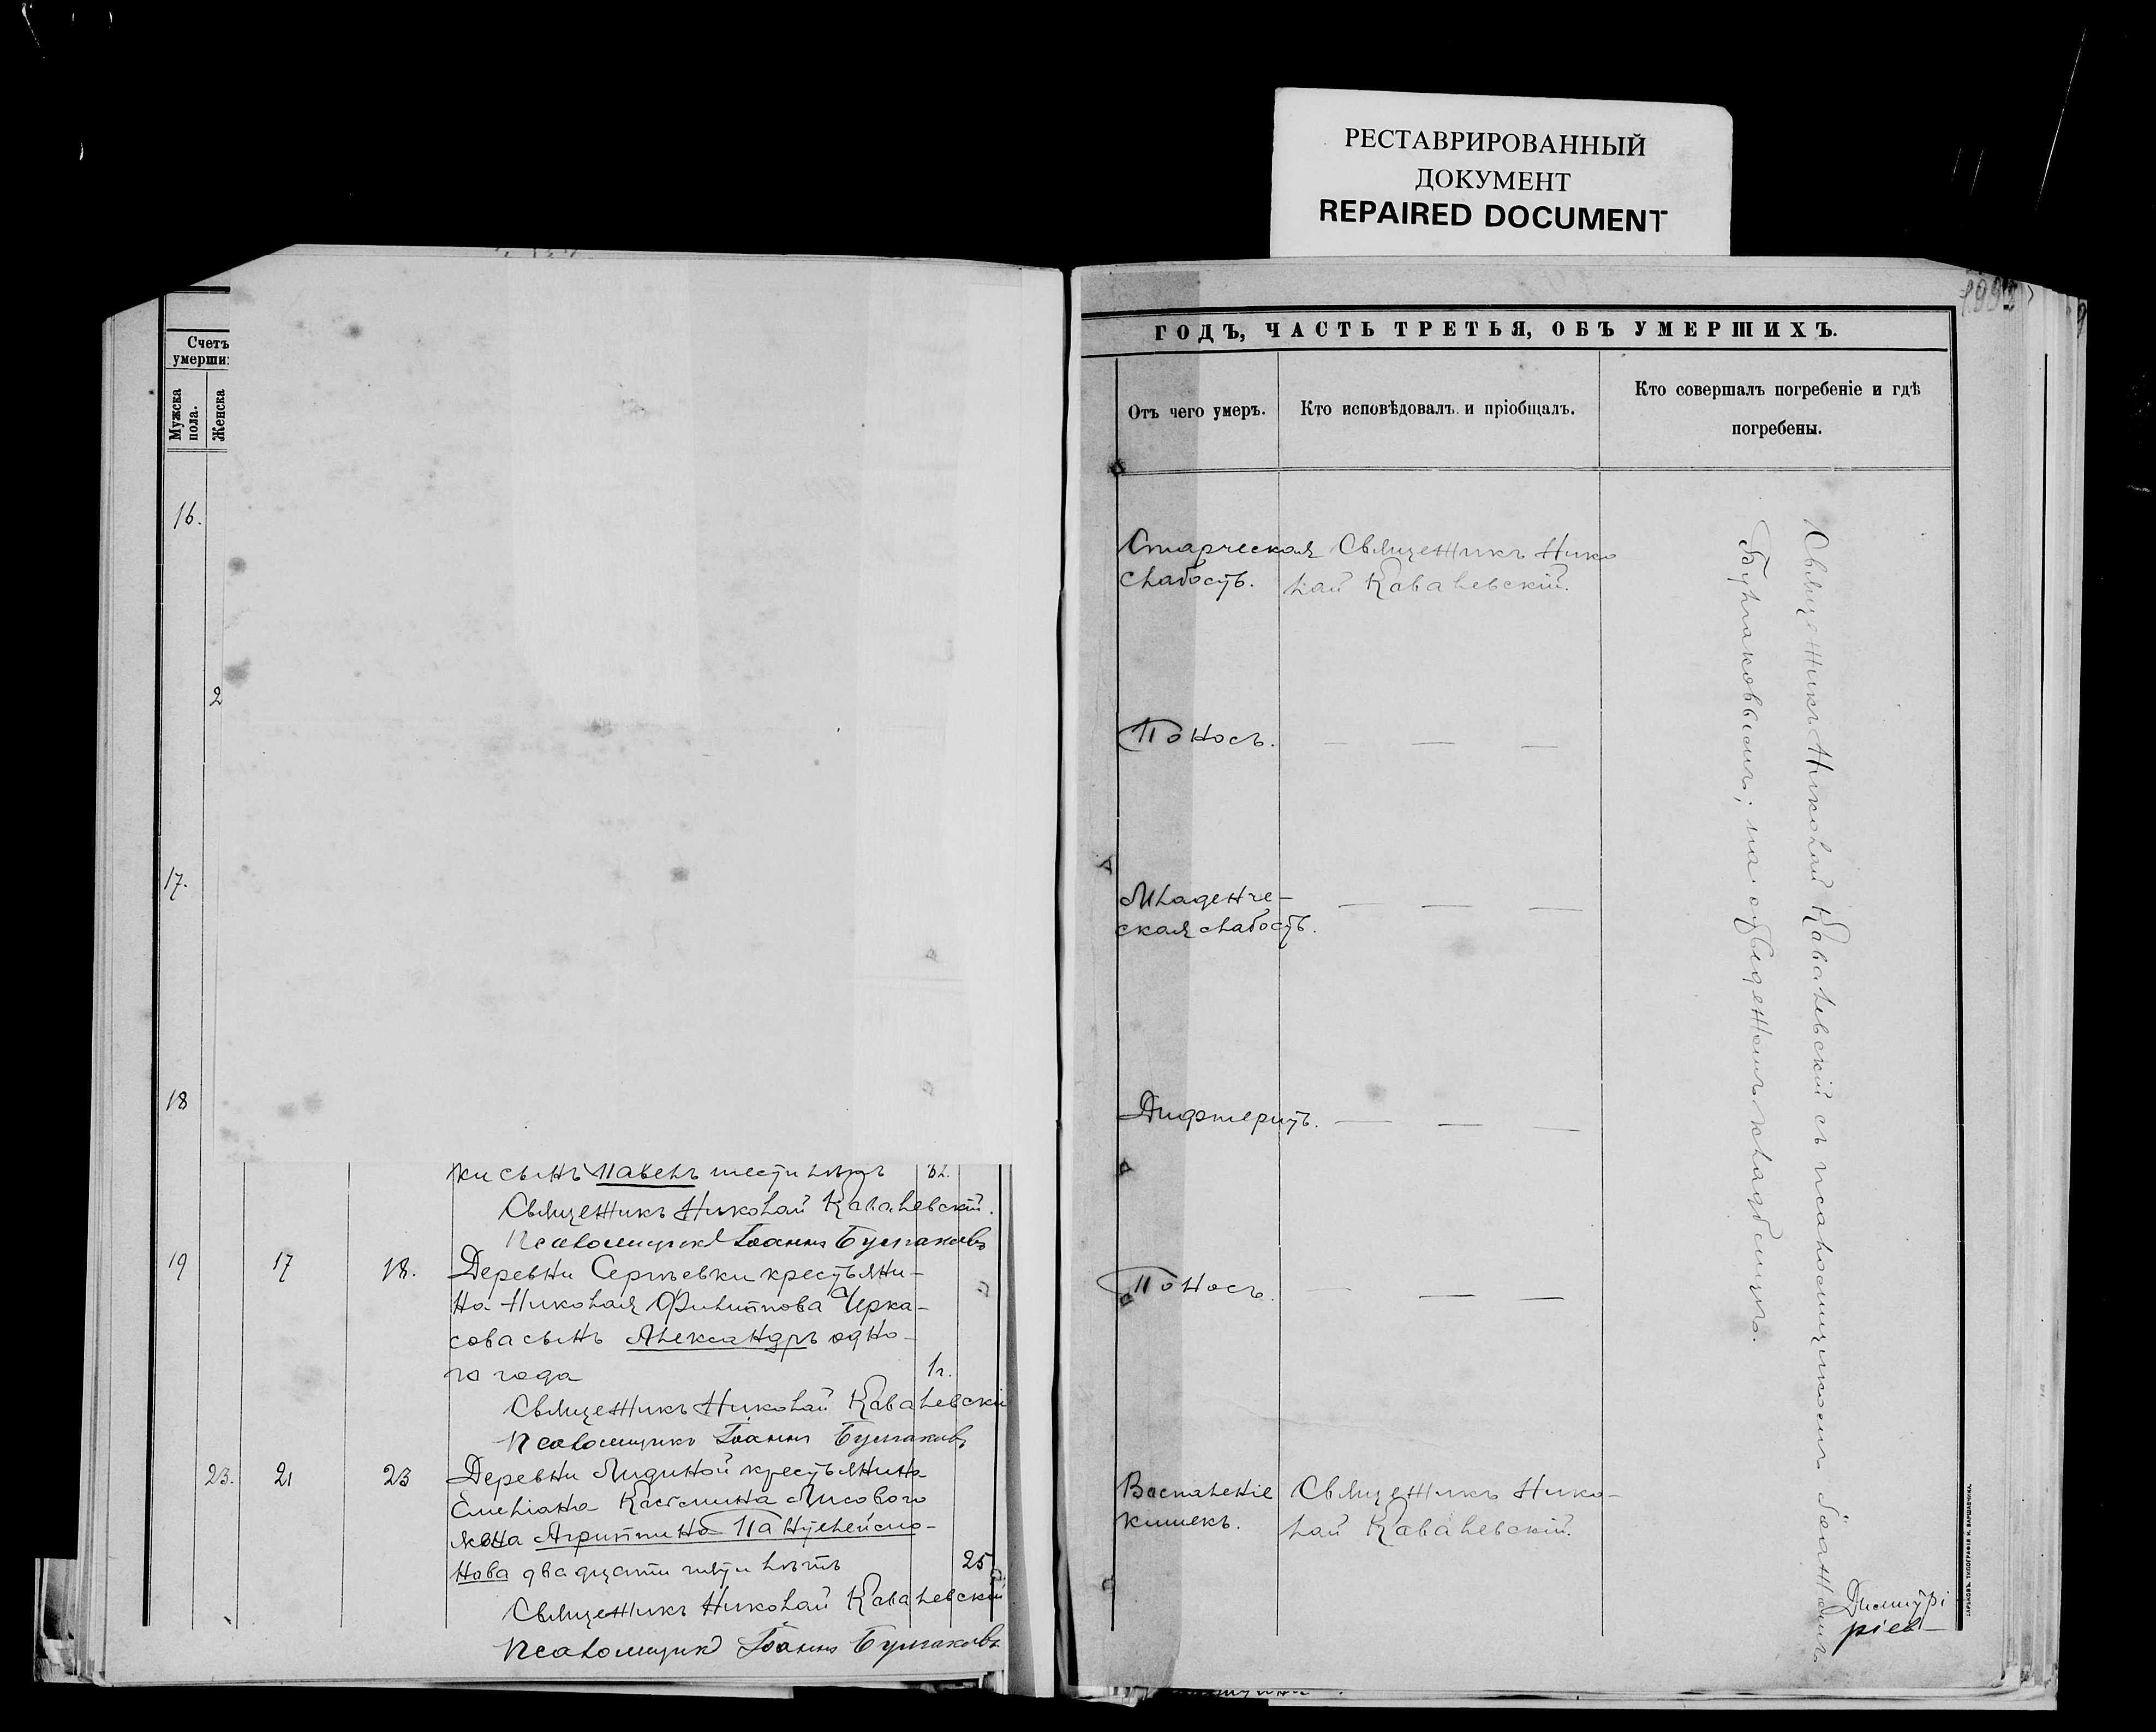 РЕСТАВРИРОВАННЫЙ
ДОКУМЕНТ
REPAIRED DOCUMENT
Счетъ
умерши
Мужска
пола.
Женска
16.
2
17.
18
ки сынъ Павелъ шести лѣтъ 6л.
Священикъ Николай Кавалевскій.
Псаломщикъ Іоаннъ Булгаковъ
19 17 18. Деревни Сергѣевки крестьяни-
на Николая Филиппова Черка-
сова сынъ Александръ одно-
го года 1г.
Священикъ Николай Кавалевскі
Псаломщикъ Іоаннъ Булгаковъ
23. 21 23 Деревни Лидиной крестьянина
Емеліана Лисового
жена Агриппина
нова двадцати пяти лѣтъ 25
Священикъ Николай Кавалевскій
Псаломщикъ Іоаннъ Булгаковъ
ГОДЪ, ЧАСТЬ ТРЕТЬЯ, ОБЪ УМЕРШИХЪ.
Отъ чего умеръ.
Кто исповѣдовалъ и пріобщалъ.
Кто совершалъ погребеніе и гдѣ
погребены.
Старческая Священикъ Нико
слабость. лай Кавалевскій.
Поносъ. — — —
Младенче- — — —
ская слабость.
Дифтеритъ. — — —
Поносъ. — — —
Воспаленіе Священикъ Нико-
кишекъ. лай Кавалевскій.
Священикъ Николай Кавалевскій съ псаломщикомъ Іоанномъ
Булгаковымъ; на отведеномъ кладбищѣ.
ХАРЬКОВЪ. ТИПОГРАФІЯ И. ВАРШАВЧИКА.